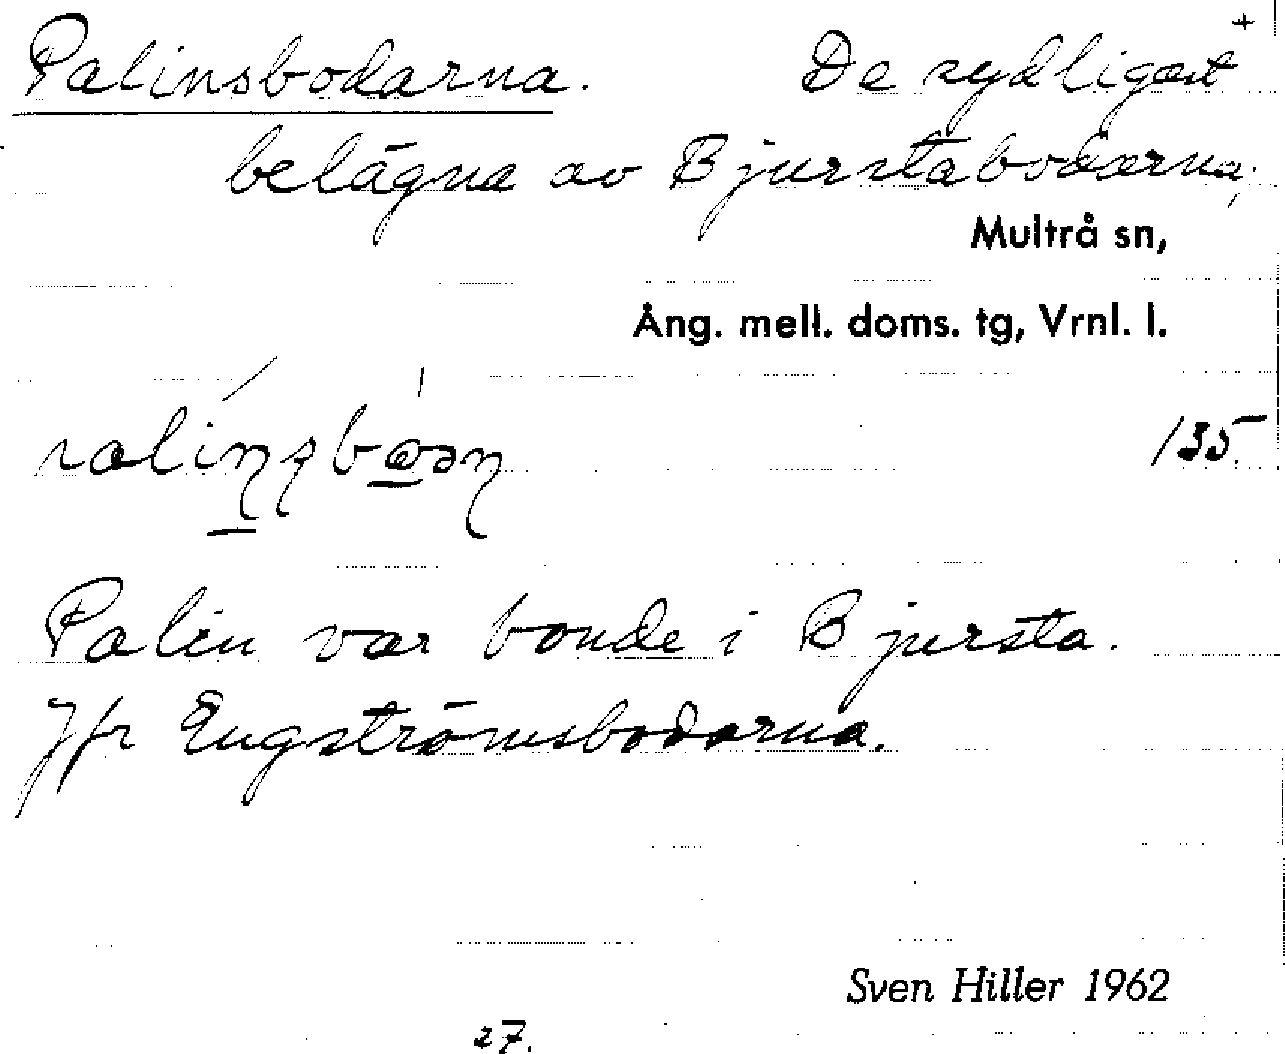 Palinsbodarna. De sydligast +
belägna av Bjurstabodarna,
Multrå sn,
Ång. mell. doms. tg, Vrnl. l.
135
Palin var bonde i Bjursta.
Jfr Engströmsbodarna.
Sven Hiller 1962
27.